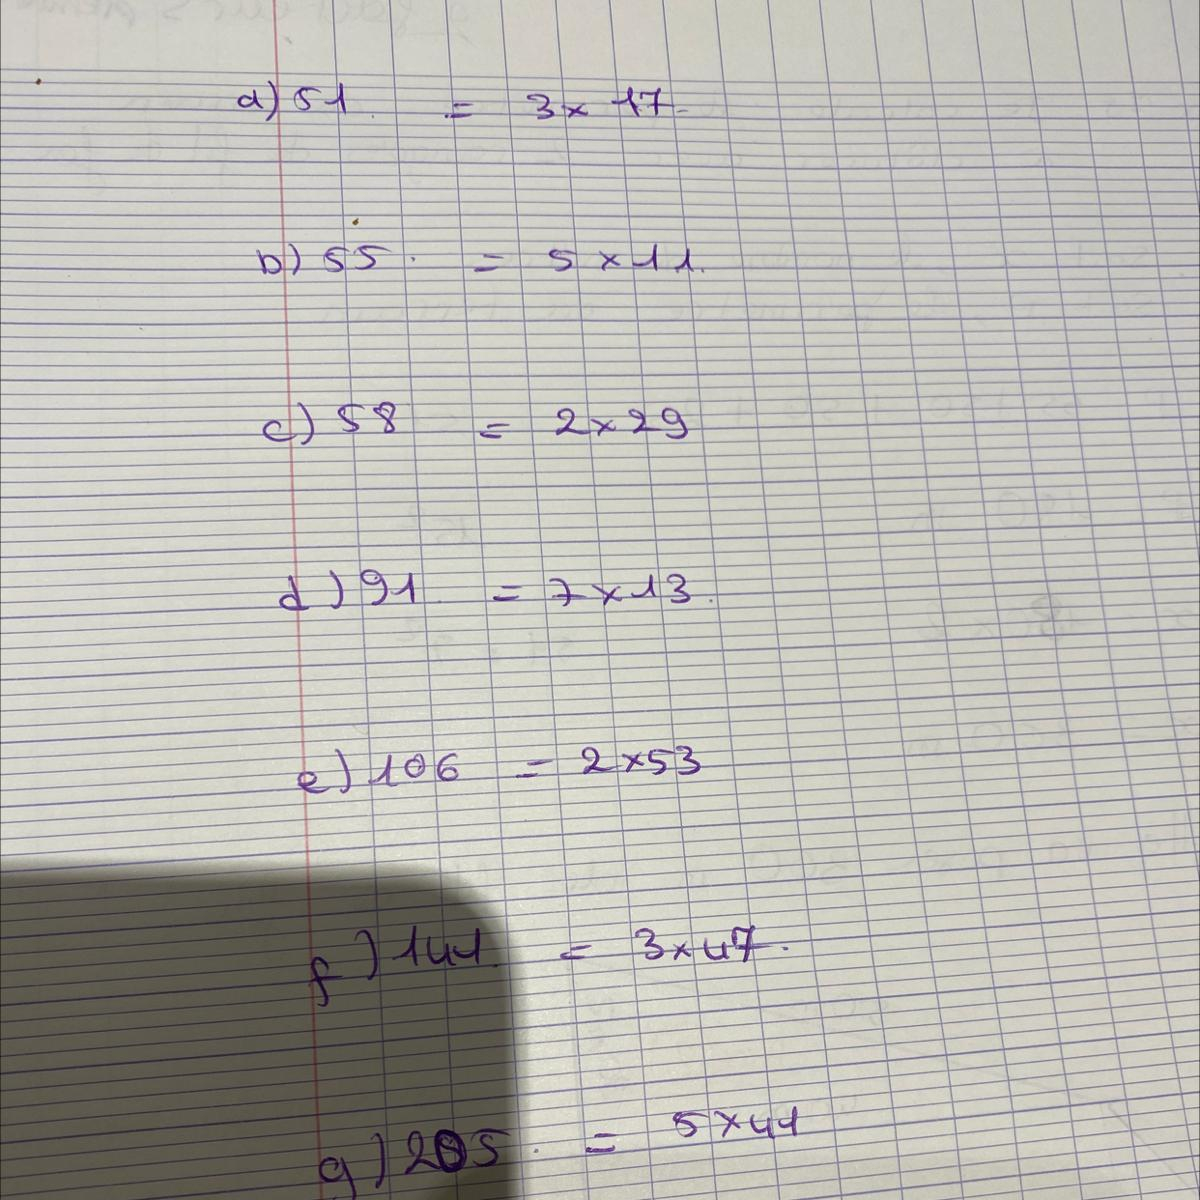 a) 51 = 3 x 17
b) 55 = 5 x 11
c) 58 = 2 x 29
d) 91 = 7 x 13
e) 106 = 2 x 53
f) 141 = 3 x 47
g) 205 = 5 x 41